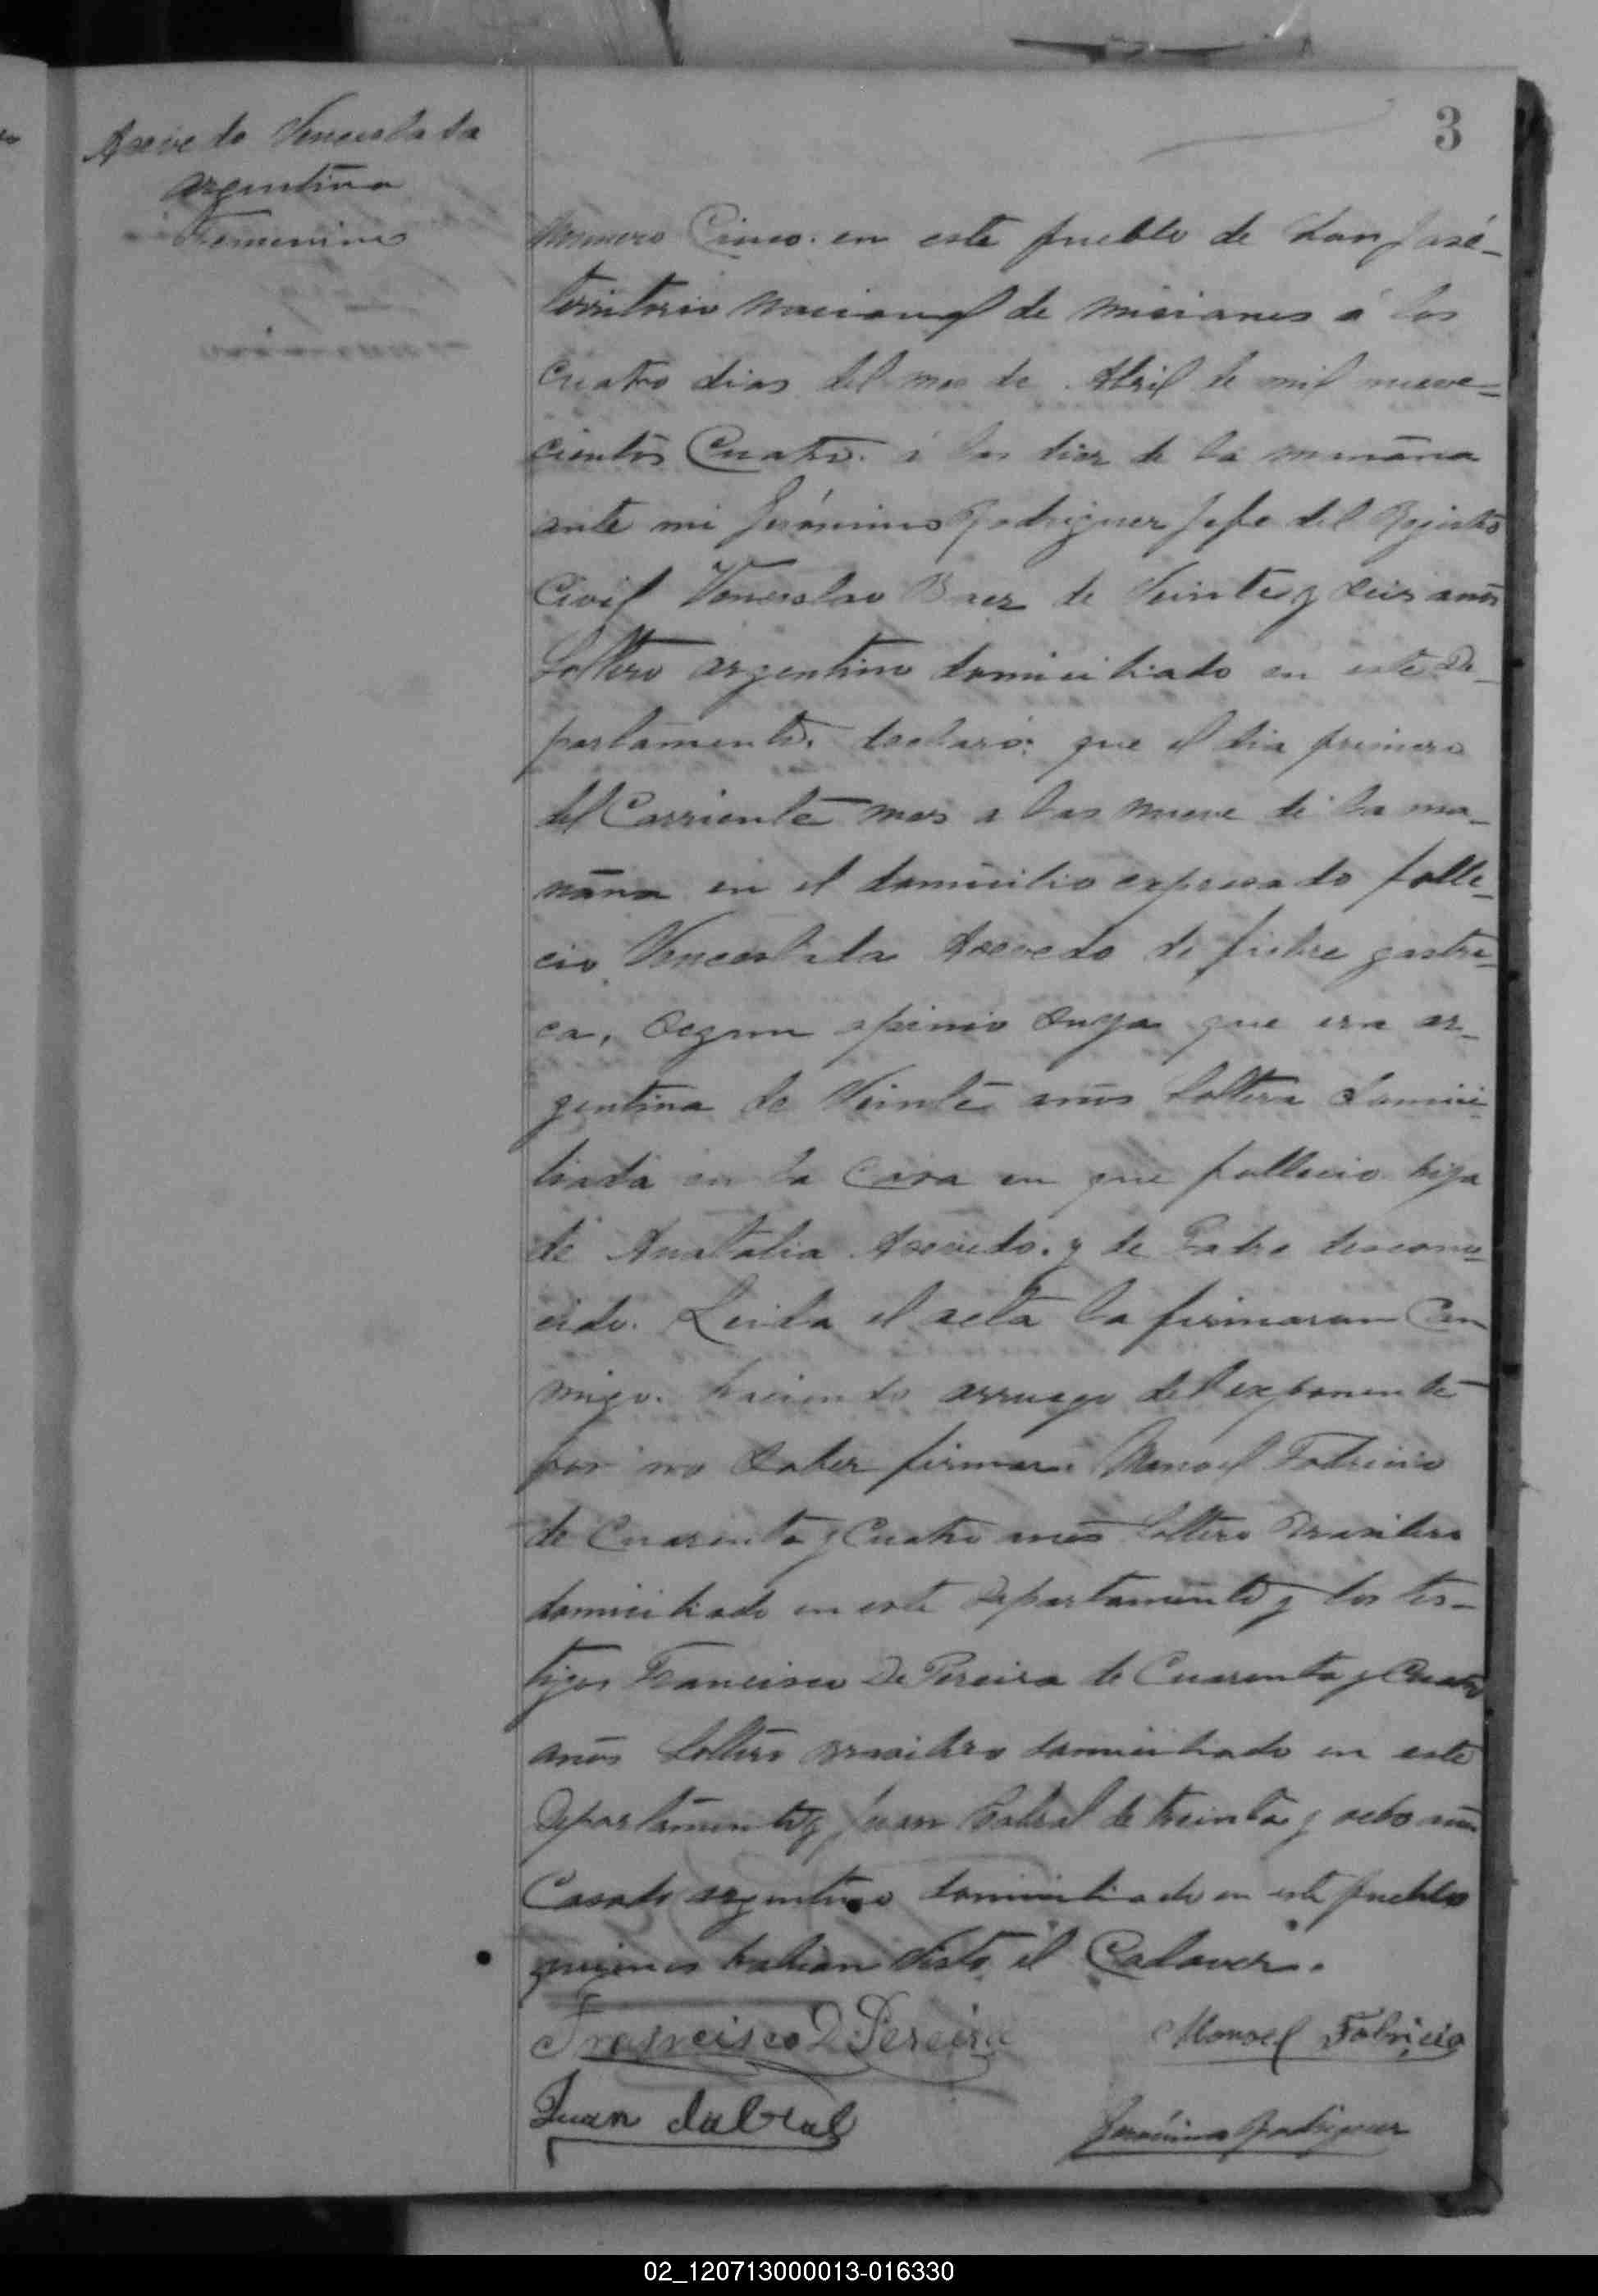 3
Asevedo Venceslada
argentina
Femenino
Numero Cinco. en este pueblo de San José-
territorio nacional de misiones á los
cuatro dias del mes de Abril de mil nueve=
cientos Cuatro. á las diez de la mañana
ante mi Jerónimo Rodriguez Jefe del Rejistro
Civil Venceslao Baez de Veinte y seis años
Soltero argentino domiciliado en este De-
partamento. declaró: que el dia primero
del Corriente mes a las nueve de la ma-
ñana en el domicilio expresado falle-
cio Venceslada Asevedo de fiebre gastri-
ca, segun opinio suya que era ar-
gentina de Veinte años Soltera domici-
liada en la Casa en que fallecio hija
de Anatalia Asevedo. y de Padre descono-
cido. Leida el acta la firmaron Con
migo. haciendo arruego del exponente
por no Saber firmar. Manoel Fabricio
de Cuarenta y Cuatro anos Soltero Brasilero
domiciliado en este Departamento y los tes-
tigos Francisco D. Pereira de Cuarenta y Cuatro
anos Soltero brasilero domiciliado en este
Departamento y Juan Cabral de treinta y ocho años
Casado argentino domiciliado en este pueblo
quienes habian Visto el Cadaver.
Francisco D. Pereira Manoel Fabricio
Juan Cabral Jerónimo Rodriguez
02_120713000013-016330